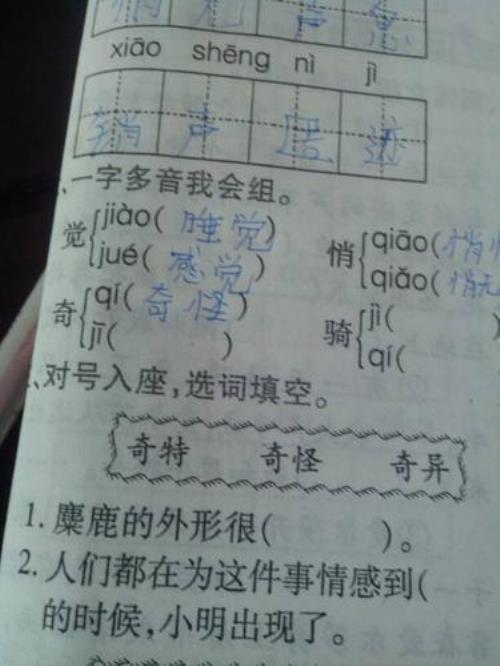 悄 无 声 息
xiāo shēng nì jì
销 声 匿 迹
、一字多音我会组。
觉 jiào( 睡觉 ) 悄 qiāo( 悄悄
jué( 感觉 ) qiǎo( 悄无
奇 qí( 奇怪 ) 骑 jì( )
jī( ) qí(
、对号入座,选词填空。
奇特 奇怪 奇异
1. 麋鹿的外形很( )。
2. 人们都在为这件事情感到(
的时候,小明出现了。